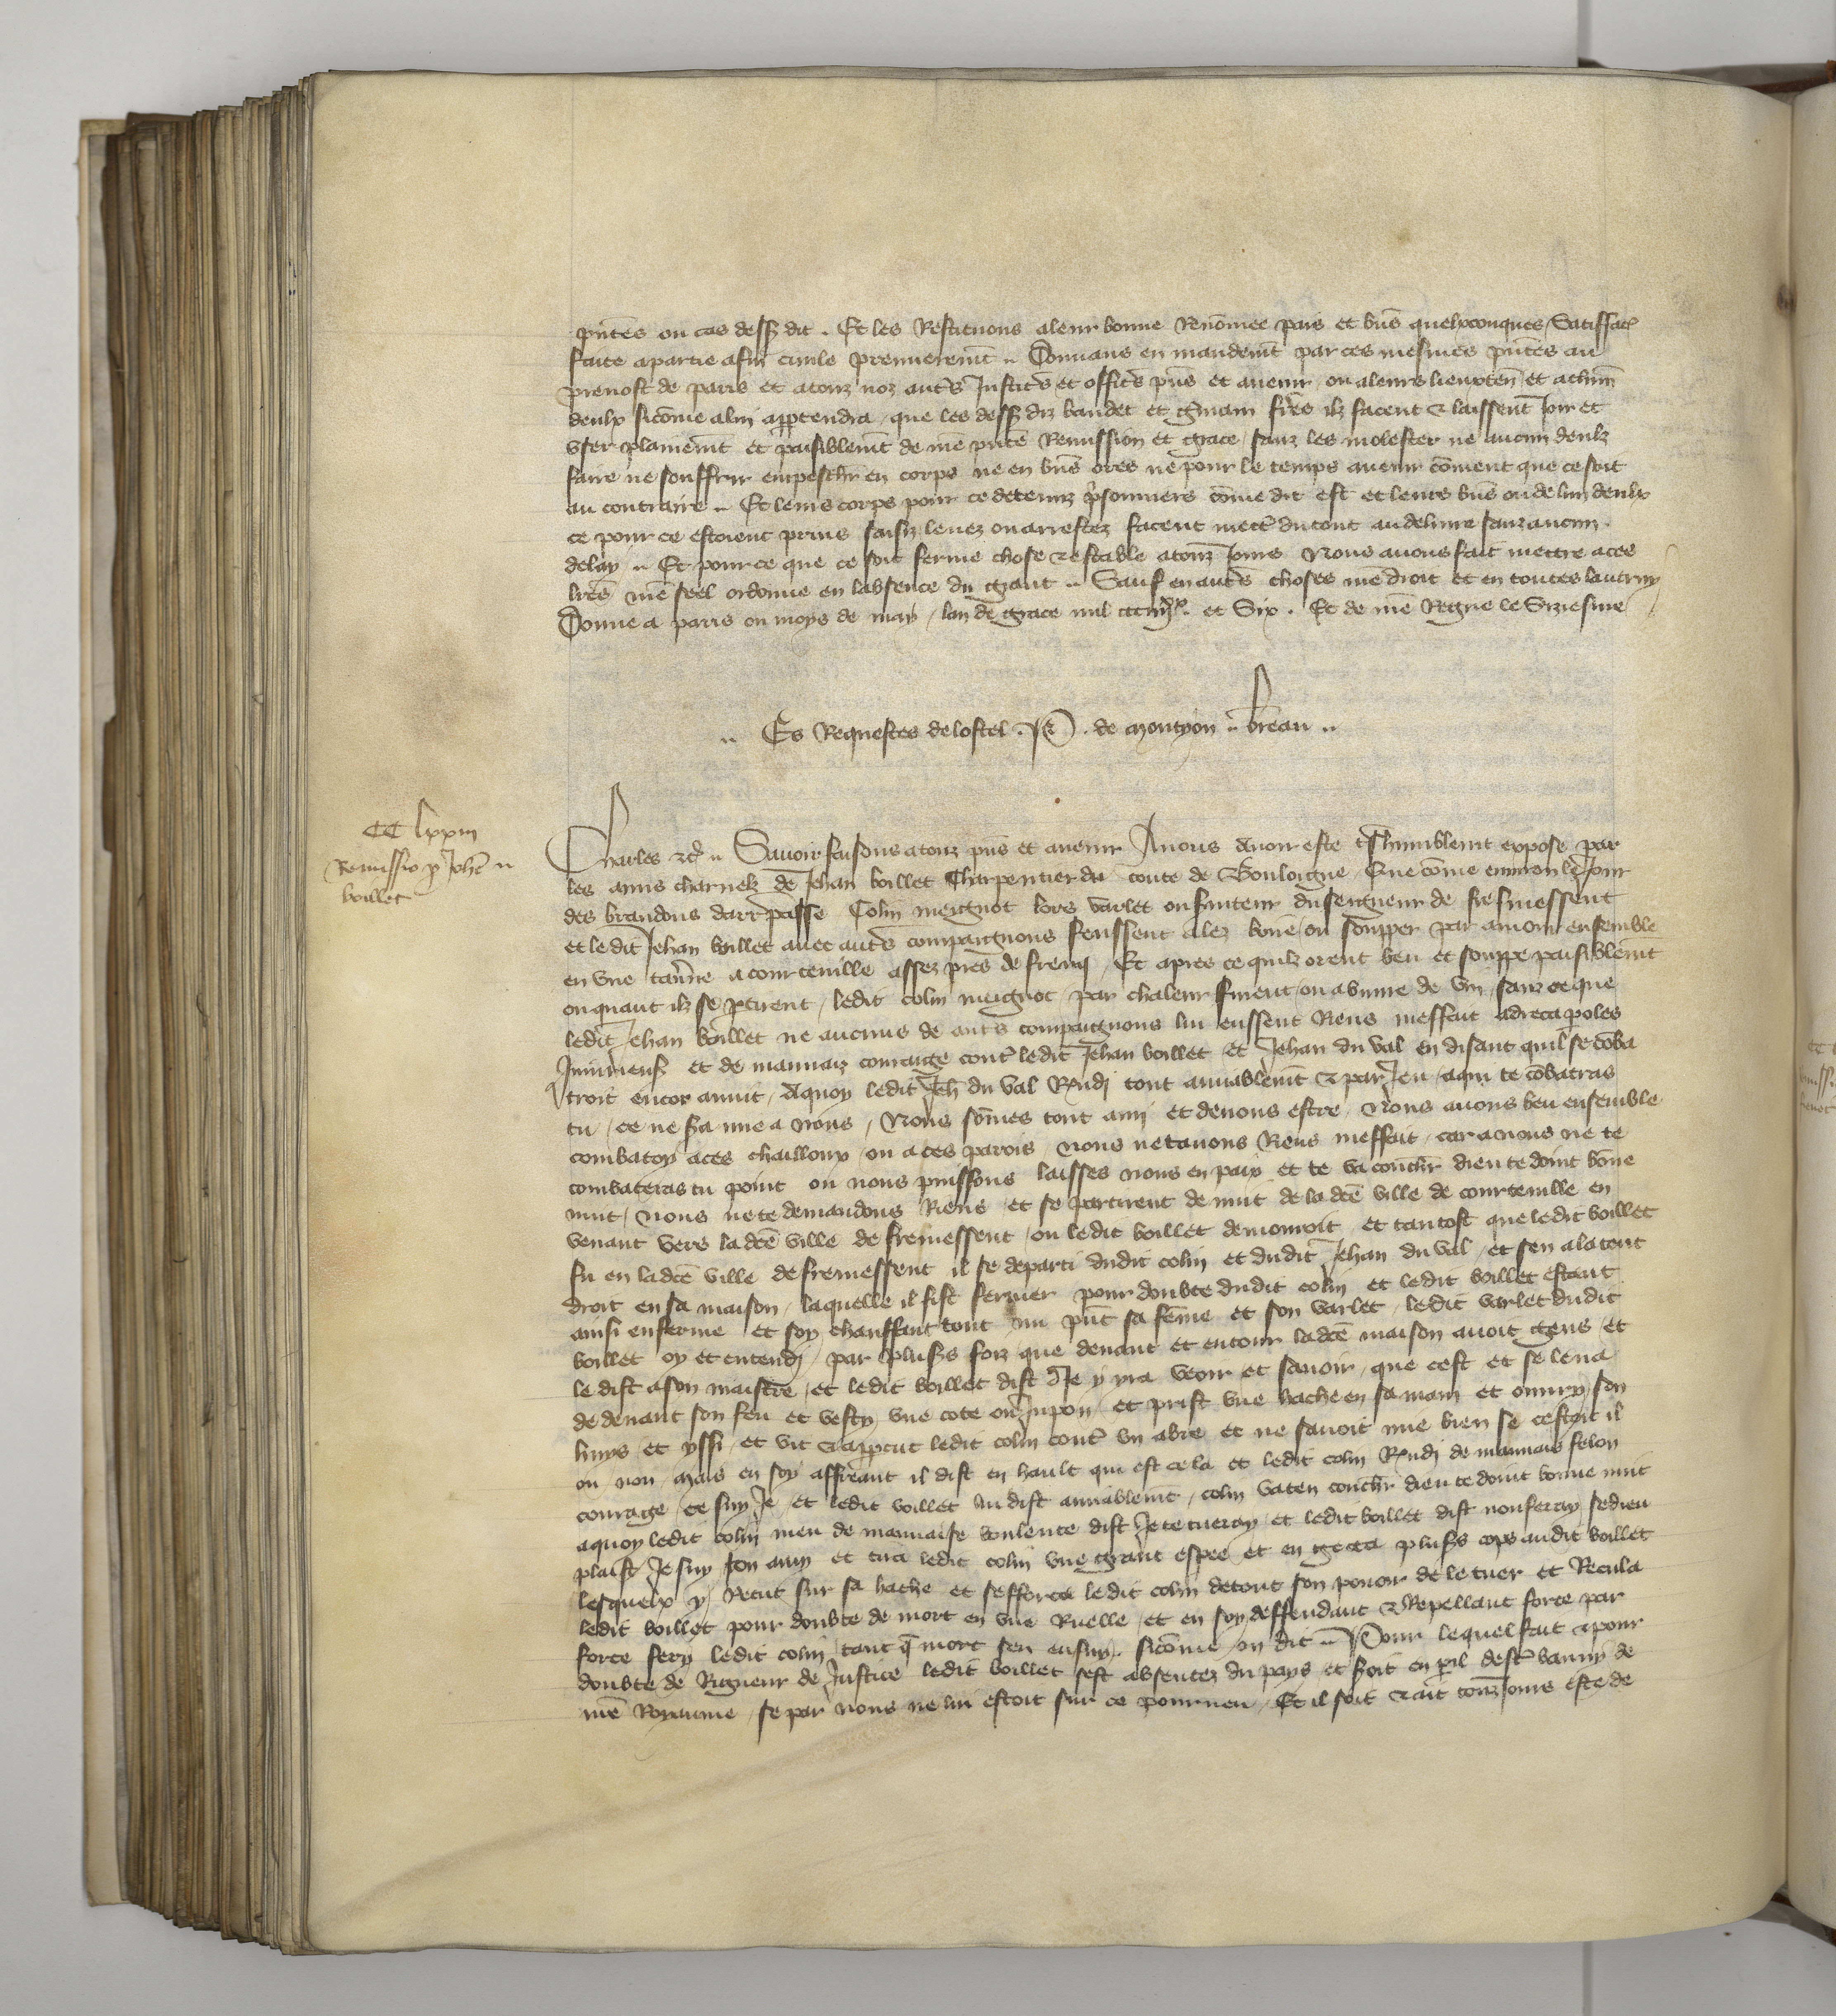 pñtes ou cas dessus dit . Et les Restituons a leur bonne Renõmee pais et biens quelxconques Satisfaccõn
faite a partie afin ciuile premieremt .. Donnans en mandemt par ces mesmes pñtes au
preuost de paris et a touz noz autres Justic̃s et offic̃s pñs et auenir ou a leurs lieuxteñ et a chũn
deulx sicõme a lui appartendra que les dessus diz baudet et germain fr̃es ilz facent & laissent Joir et
vser plainemt et paisiblemt de ñre pñte Remission et grace sanz les molester ne aucun deulz
faire ne souffrir empescher en corps ne en biens ores ne pour le temps auenir cõment que ce soit
au contraire .. Et leurs corps pour ce detenuz prisonniers cõme dit est et leurs biens ou de lun deulx
ce pour ce estoient prins saisiz leuez ou arrestez facent mettre du tout au deliure sanz aucun
delay .. Et pour ce que ce soit ferme chose & estable a touz Jours Nous auons fait mettre a ces
lr̃es ñre seel ordonne en labsence du grant .. Sauf en autres choses ñre droit et en toutes lautruy
Donne a paris ou moys de may lan de grace mil ccc iiijxx. et Six . Et de ñre Regne le Siziesme
.. Es Requestes de lostel . J D . de montyon .. breau ..
CC lxxiij
Remissio p Johẽ
boillet
Charles &c̃ .. Sauoir faisons a touz pñs et auenir A nous auoir este tres humblemt expose par
les amis charnelz de Jehan boillet Charpentier du conte de Bouloigne Que cõme enuiron le Jour
des brandons darr passe Colin meignot lors varlet ou seruiteur du seigneur de fresmessent
et le dit Jehan boillet auec autres compaignons feussent alez boire ou soupper par amour ensemble
en vne tauerne a courteuille assez pres de frenq Et apres ce quilz orent beu et souppe paisiblemt
ou quant ilz se partirent ledit colin meignot par chaleur sirent ou abuure de vin sanz ce que
ledit Jehan boillet ne aucuns de autres compaignons lui eussent Riens meffait adreca paroles
Jniurieuses et de mauuaiz courage contre ledit Jehan boillet et Jehan du val en disant quil se cõba
troit encor anuit Aquoy ledit Jeh̃ du val Respondi tout amiablemt & par Jeu a qui te cõbatras
tu ce ne sera mie a nous Nous sõmes tout ami et deuons estre Nous auons beu ensemble
combatoy a ces chailloux ou a ces parois nous ne tauons Riens meffait car a nous ne te
combateras tu point ou nous puissons laisses nous en paix et te va coucher dieu te doint bõne
nuit nous ne te demandons Riens et se partirent de nuit de la dc̃e ville de courteuille en
venant vers la dc̃e ville de fremessent ou ledit boillet demouroit et tantost que ledit boillet
fu en la dc̃e ville de fremessent il se departi dudit colin et dudit Jehan du val et sen ala tout
droit en sa maison laquelle il fist fermer pour doubte dudit colin et ledit boillet estant
ainsi enferme et soy chauffant tout nu pñt sa fẽme et son varlet ledit varlet dudit
boillet oy et entendi par plusrs foiz que deuant et entour la dc̃e maison auoit gens et
le dist a son maistre et ledit boillet dist Je y yra veoir et sauoir que cest et se leua
de deuant son feu et vesty vne cote ou Jupon et prist vne hache en sa main et ouury son
huys et yssi et vit & apperceut ledit colin contre vn abre et ne sauoit mie bien se cestoit il
ou non mais en soy affreant il dist en hault qui est ce la et ledit colin Respondi de mauuais felon
courage ce suy Je et ledit boillet lui dist amiablemt colin vaten coucher dieu te doint bonne nuit
aquoy ledit colin meu de mauuaise voulente dist Je te tueray et ledit boillet dist non feray se dieu
plaist Je suy ton amy et tira ledit colin vne grant espee et en getta plusrs cops audit boillet
lesquelx y Recut sur sa hache et sefforca ledit colin de tout son pouoir de le tuer et Recula
ledit boillet pour doubte de mort en vne Ruelle et en soy deffendant & Repellant force par
force fery ledit colin tant que mort sen ensuy sicõme on dit .. Pour lequel fait & pour
doubte de Rigueur de Justice ledit boillet sest absentez du pays et seroit en peril destre banny de
ñre Royaume se par nous ne lui estoit sur ce pourueu Et il soit & ait touzJours este de